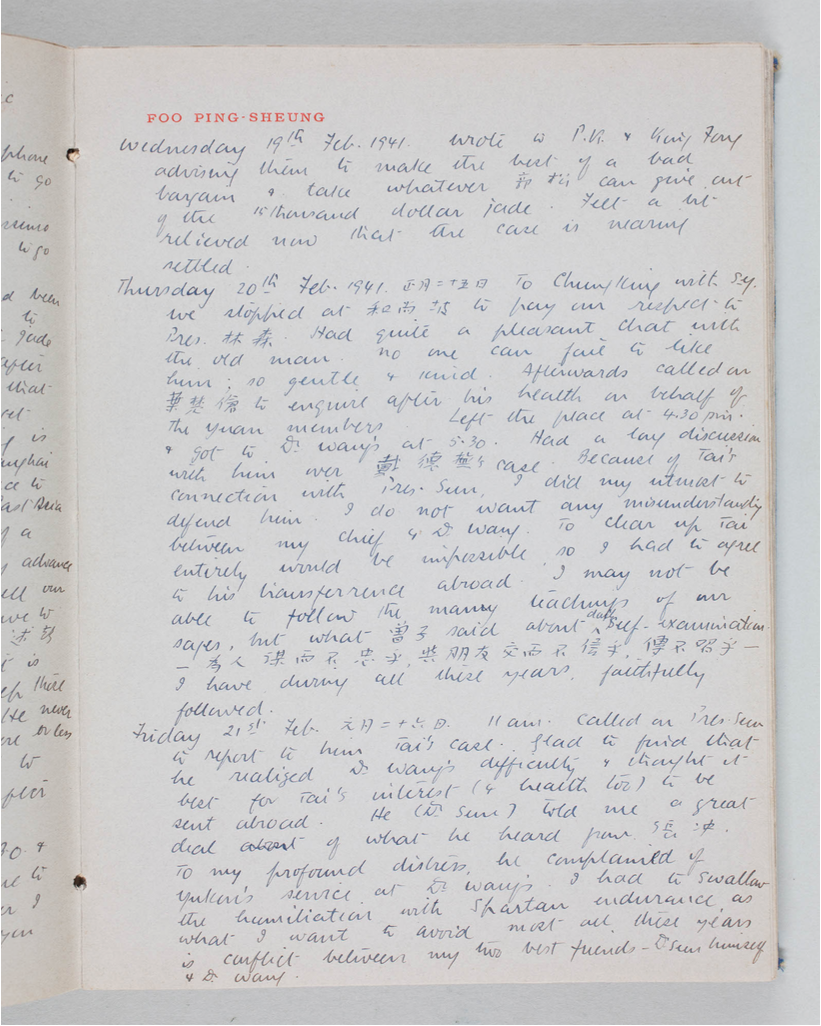 FOO PING-SHEUNG
Wednesday 19th Feb. 1941. Wrote to P.K. & Kung Fong
advising them to make the best of a bad
bargain & take whatever can give out
of the thousand dollar jade. Felt a bit
relieved now that the case is nearing
settled.
Thursday 20th Feb. 1941. 正月二十五日 To Chungking with Sy.
we stopped at 和尚坡 to pay our respect to
Pres. 林森. Had quite a pleasant chat with
the old man. no one can fail to like
him; so gentle & kind. Afterwards called on
葉楚傖 to enquire after his health on behalf of
the yuan members. Left the place at 4.30 p.m.
& got to Dr. Wang's at 5.30. Had a long discussion
with him over 戴德 's case. Because of Tai's
connection with Pres. Sun, I did my utmost to
defend him. I do not want any misunderstanding
between my chief & Dr. Wang. To clear up Tai
entirely would be impossible, so I had to agree
to his transferrence abroad. I may not be
able to follow the many teachings of our
sages, but what 曾子 said about daily self-examination
一為人謀而不忠乎, 與朋友交而不信乎, 傳不習乎一
I have during all these years, faithfully
followed.
Friday 21st Feb. 元月二十六日. 11 a.m. called on Pres. Sun
to report to him Tai's case. Glad to find that
he realised Dr. Wang's difficulty & thought it
best for Tai's interest (& health too) to be
sent abroad. He (Dr. Sun) told me a great
deal of what he heard from
To my profound distress, he complained of
Yukon's service at Dr. Wang's. I had to swallow
the humiliation with Spartan endurance, as
what I want to avoid most all these years
is conflict between my two best friends - Dr. Sun himself
& Dr. Wang.
phone
to go
to go
been
to
jade
after
that
is
East Asia
of a
advance
our
to
is
there
He never
or less
to
&
to
I